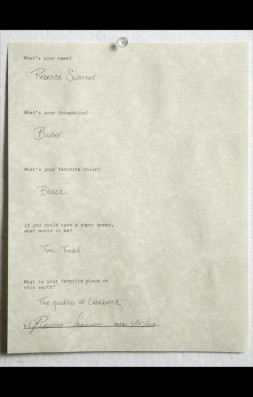 What's your name?
Rebecca
What's your Occupation?
Baker
What's your favorite Color?
Black
If you could have a super power,
what would it be?
Time Travel
What is your favorite place on
this earth?
The gardens at